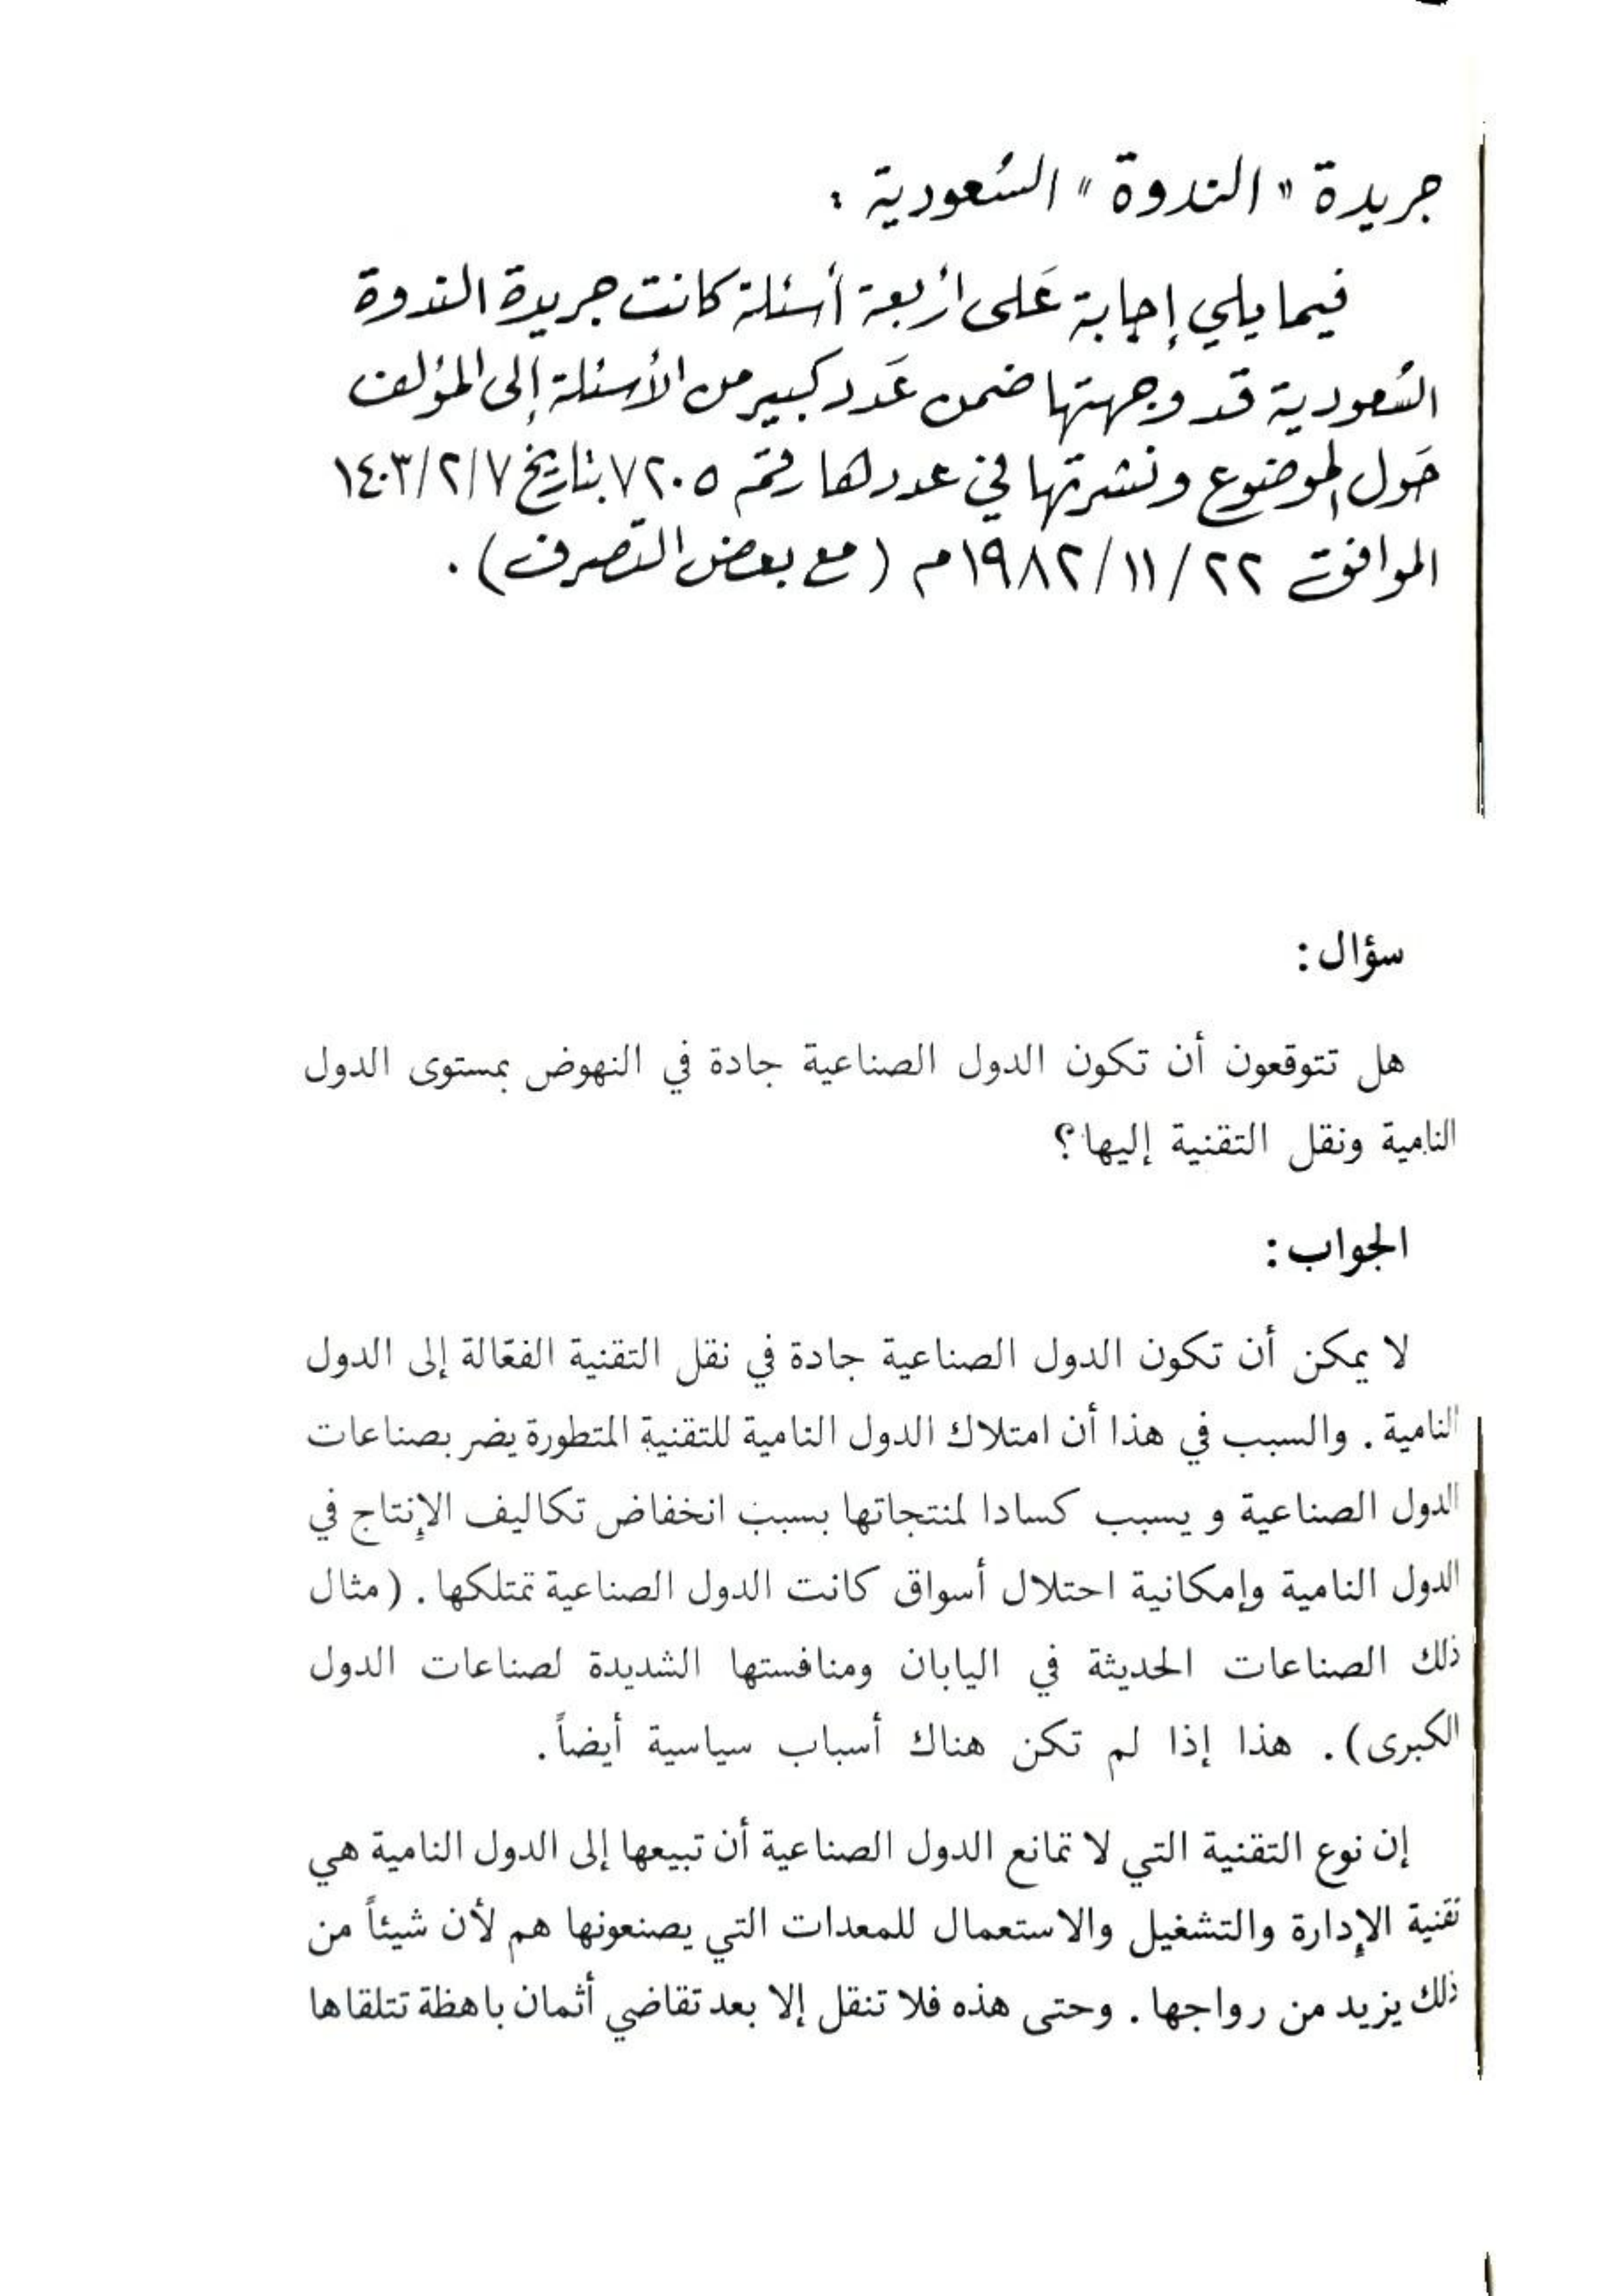 جريدة « الندوة » السُعودية :
فيما يلي إجابة عَلى أربعة أسئلة كانت جريدة الندوة
السُعودية قد وجهتها ضمن عَدد كبير من الأسئلة إلى المؤلف
حَول الموضوع ونشرتها في عددها رقم ٧٢٠٥ بتاريخ ١٤٠٣/٢/٧
الموافق ١٩٨٢/١١/٢٢م (مع بعض التصرف).
سؤال:
هل تتوقعون أن تكون الدول الصناعية جادة في النهوض بمستوى الدول
النامية ونقل التقنية إليها؟
الجواب:
لا يمكن أن تكون الدول الصناعية جادة في نقل التقنية الفعّالة إلى الدول
النامية. والسبب في هذا أن امتلاك الدول النامية للتقنية المتطورة يضر بصناعات
الدول الصناعية ويسبب كسادا لمنتجاتها بسبب انخفاض تكاليف الإنتاج في
الدول النامية وإمكانية احتلال أسواق كانت الدول الصناعية تمتلكها. (مثال
ذلك الصناعات الحديثة في اليابان ومنافستها الشديدة لصناعات الدول
الكبرى). هذا إذا لم تكن هناك أسباب سياسية أيضاً.
إن نوع التقنية التي لا تمانع الدول الصناعية أن تبيعها إلى الدول النامية هي
تقنية الإدارة والتشغيل والاستعمال للمعدات التي يصنعونها هم لأن شيئاً من
ذلك يزيد من رواجها. وحتى هذه فلا تنقل إلا بعد تقاضي أثمان باهظة تتلقاها